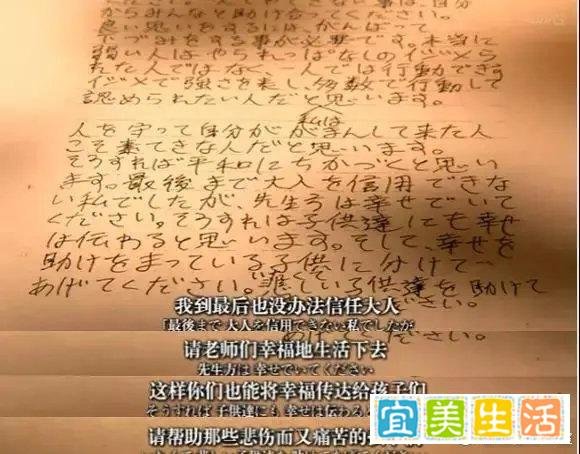 からみんなと助け合ってください。
良い思いをするには、がんばって
弱い人はやられっぱなしのイジメら
れた人ではなく、一人では行動できず
イジメで強さを表し、多数で行動して
認められたい人だと思います。
私は
人を守って自分ががまんして来た人
こそ素てきな人だと思います。
そうすれば平和にちかづくと思い
ます。最後まで大人を信用できな
い私でしたが、先生方は幸せでいて
ください。そうすれば子供達にも幸せ
は伝わると思います。そして、幸せを
助けをまっている子供に分けて
あげてください。悲しい子供達を助けて
我到最后也没办法信任大人
「最後まで 大人を信用できない私でしたが
请老师们幸福地生活下去
先生方は 幸せでいてください
这样你们也能将幸福传达给孩子们
そうすれば 子供達にも 幸せは伝わる
请帮助那些悲伤而又痛苦的
宜美生活